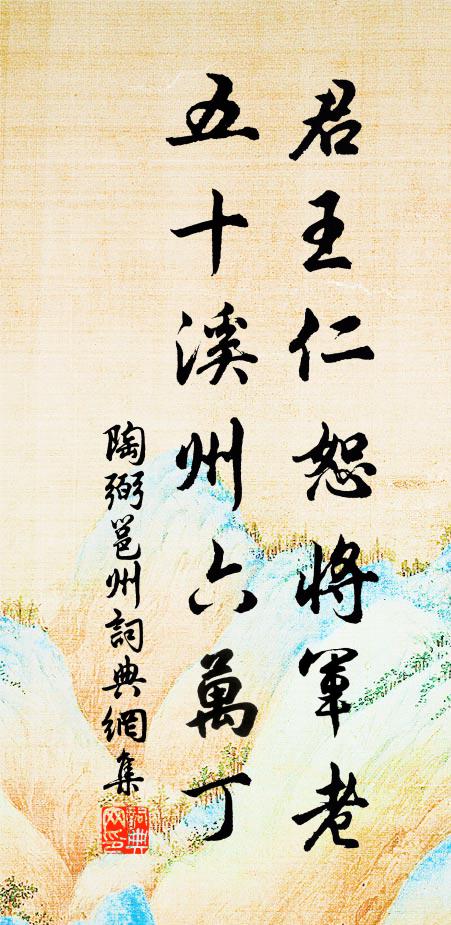 君王仁恕將軍老
五十溪州六萬丁
陶弼邕州詞典網集
詞典網印